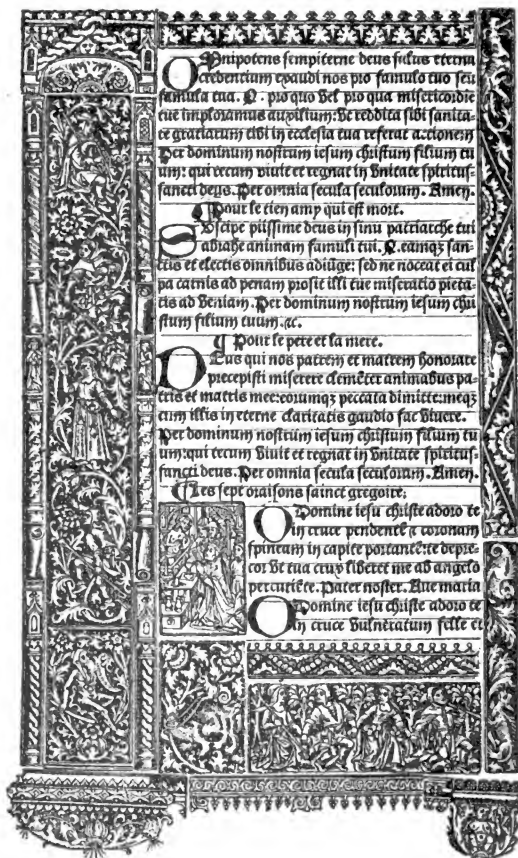 Omnipotens sempiterne deus salus eterna
credentium exaudi nos pro famulo tuo seu
famula tua. N. pro quo vel pro qua misericordie
tue imploramus auxilium: vt reddita sibi sanita-
te gratiarum tibi in ecclesia tua referat actionem
Per dominum nostrum iesum christum filium tu
um: qui tecum viuit et regnat in vnitate spiritus-
sancti deus. Per omnia secula seculorum. Amen.
¶ Pour le tien amy qui est mort.
Suscipe piissime deus in sinu patriarche tui
abrahe animam famuli tui. N. eamqꝫ san-
ctis et electis omnibus adiũge: sed ne noceat ei cul
pa carnis ad penam prosit illi tue miseratio pieta-
tis ad veniam. Per dominum nostrum iesum chri
stum filium tuum. ⁊c.
¶ Pour le pere et la mere.
Deus qui nos patrem et matrem honorare
precepisti miserere clemẽter animabus pa-
tris et matris mee: eorumqꝫ peccata dimitte: meqꝫ
cum illis in eterne claritatis gaudio fac viuere.
Per dominum nostrum iesum christum filium tu
um: qui tecum viuit et regnat in vnitate spiritus-
sancti deus. Per omnia secula seculoram. Amen.
¶ Les sept oraisons sainct gregoire.
O Domine iesu christe adoro te
in cruce pendentẽ ⁊ coronam
spineam in capite portantẽ: te depre-
cor vt tua crux liberet me ab angelo
percutiẽte. Pater noster. Aue maria
O Domine iesu christe adoro te
in cruce vulneratum felle et